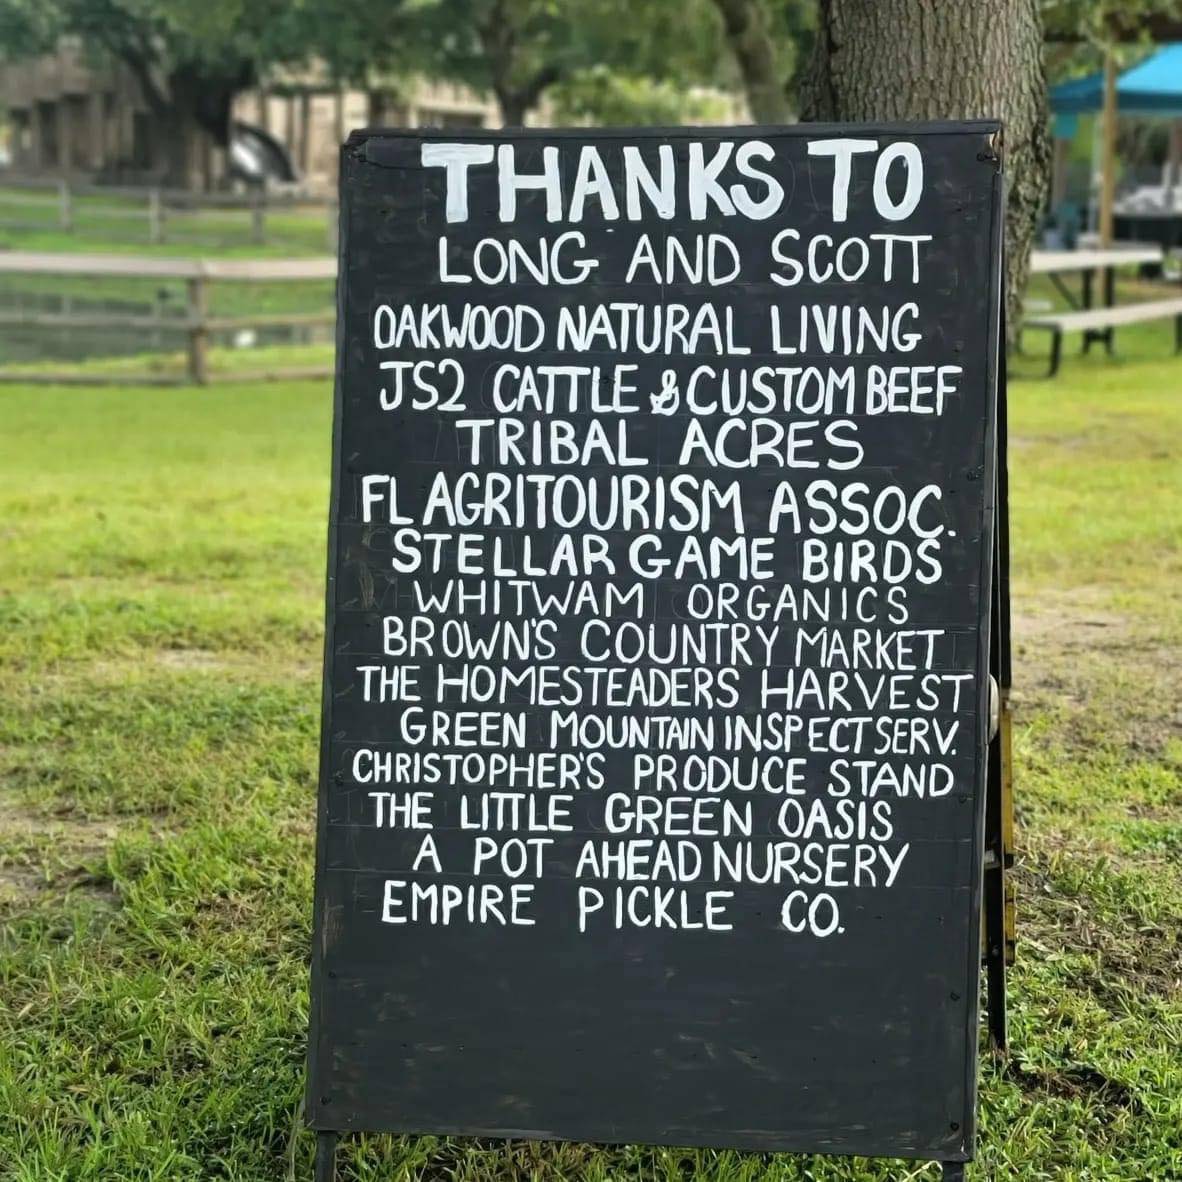 THANKS TO
LONG AND SCOTT
OAKWOOD NATURAL LIVING
JS2 CATTLE & CUSTOM BEEF
TRIBAL ACRES
FL AGRITOURISM ASSOC.
STELLAR GAME BIRDS
WHITWAM ORGANICS
BROWN'S COUNTRY MARKET
THE HOMESTEADERS HARVEST
GREEN MOUNTAIN INSPECT SERV.
CHRISTOPHER'S PRODUCE STAND
THE LITTLE GREEN OASIS
A POT AHEAD NURSERY
EMPIRE PICKLE CO.